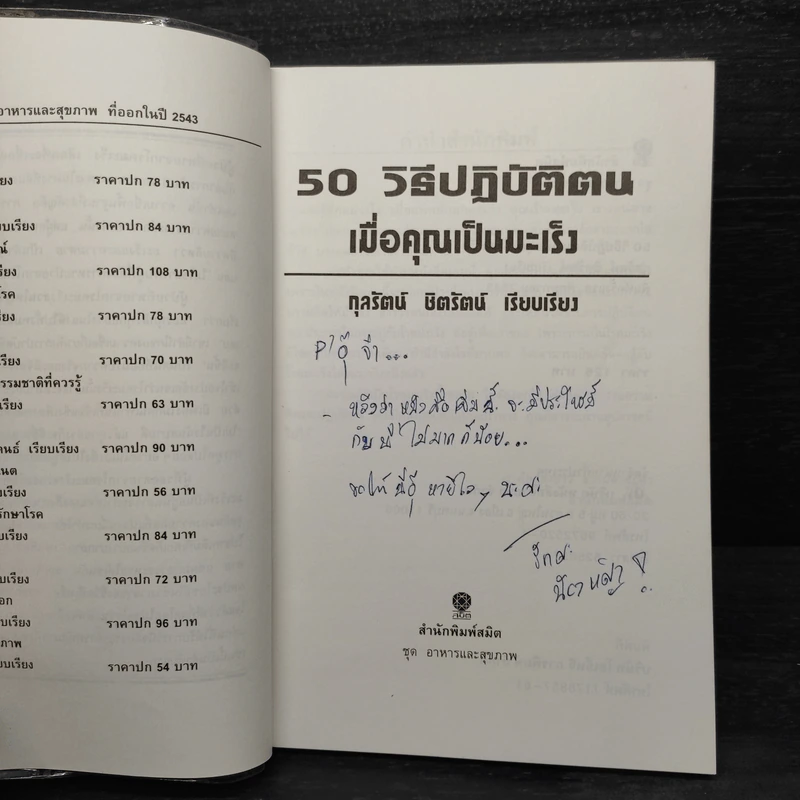 อาหารและสุขภาพ ที่ออกในปี 2543
ยง ราคาปก 78 บาท
บเรียง ราคาปก 84 บาท
ณ์
รียง ราคาปก 108 บาท
โรค
รียง ราคาปก 78 บาท
เรียง ราคาปก 70 บาท
รรมชาติที่ควรรู้
เรียง ราคาปก 63 บาท
คนธ์ เรียบเรียง ราคาปก 90 บาท
นต
งเรียง ราคาปก 56 บาท
รักษาโรค
บเรียง ราคาปก 84 บาท
บเรียง ราคาปก 72 บาท
อก
บเรียง ราคาปก 96 บาท
ภาพ
ยบเรียง ราคาปก 54 บาท
50 วิธีปฏิบัติตน
เมื่อคุณเป็นมะเร็ง
กุลรัตน์ ชิตรัตน์ เรียบเรียง
P'อุ๊ จ๋า...
- หวังว่าหนังสือเล่มนี้ จะมีประโยชน์
กับพี่ ไม่มากก็น้อย...
ขอให้พี่อุ๊ หายไวๆ นะคะ
รักค่ะ
สมิต
สำนักพิมพ์สมิต
ชุด อาหารและสุขภาพ